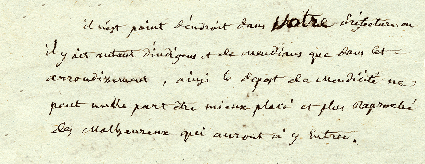 il n'est point d'endroit dans Votre préfecture ou
il y ait autant d'indigens et de mendians que dans cet
arrondissement, ainsi le depot de mendicité ne
peut nulle part être mieux placé et plus raproché
des malheureux qui auront a y entrer.